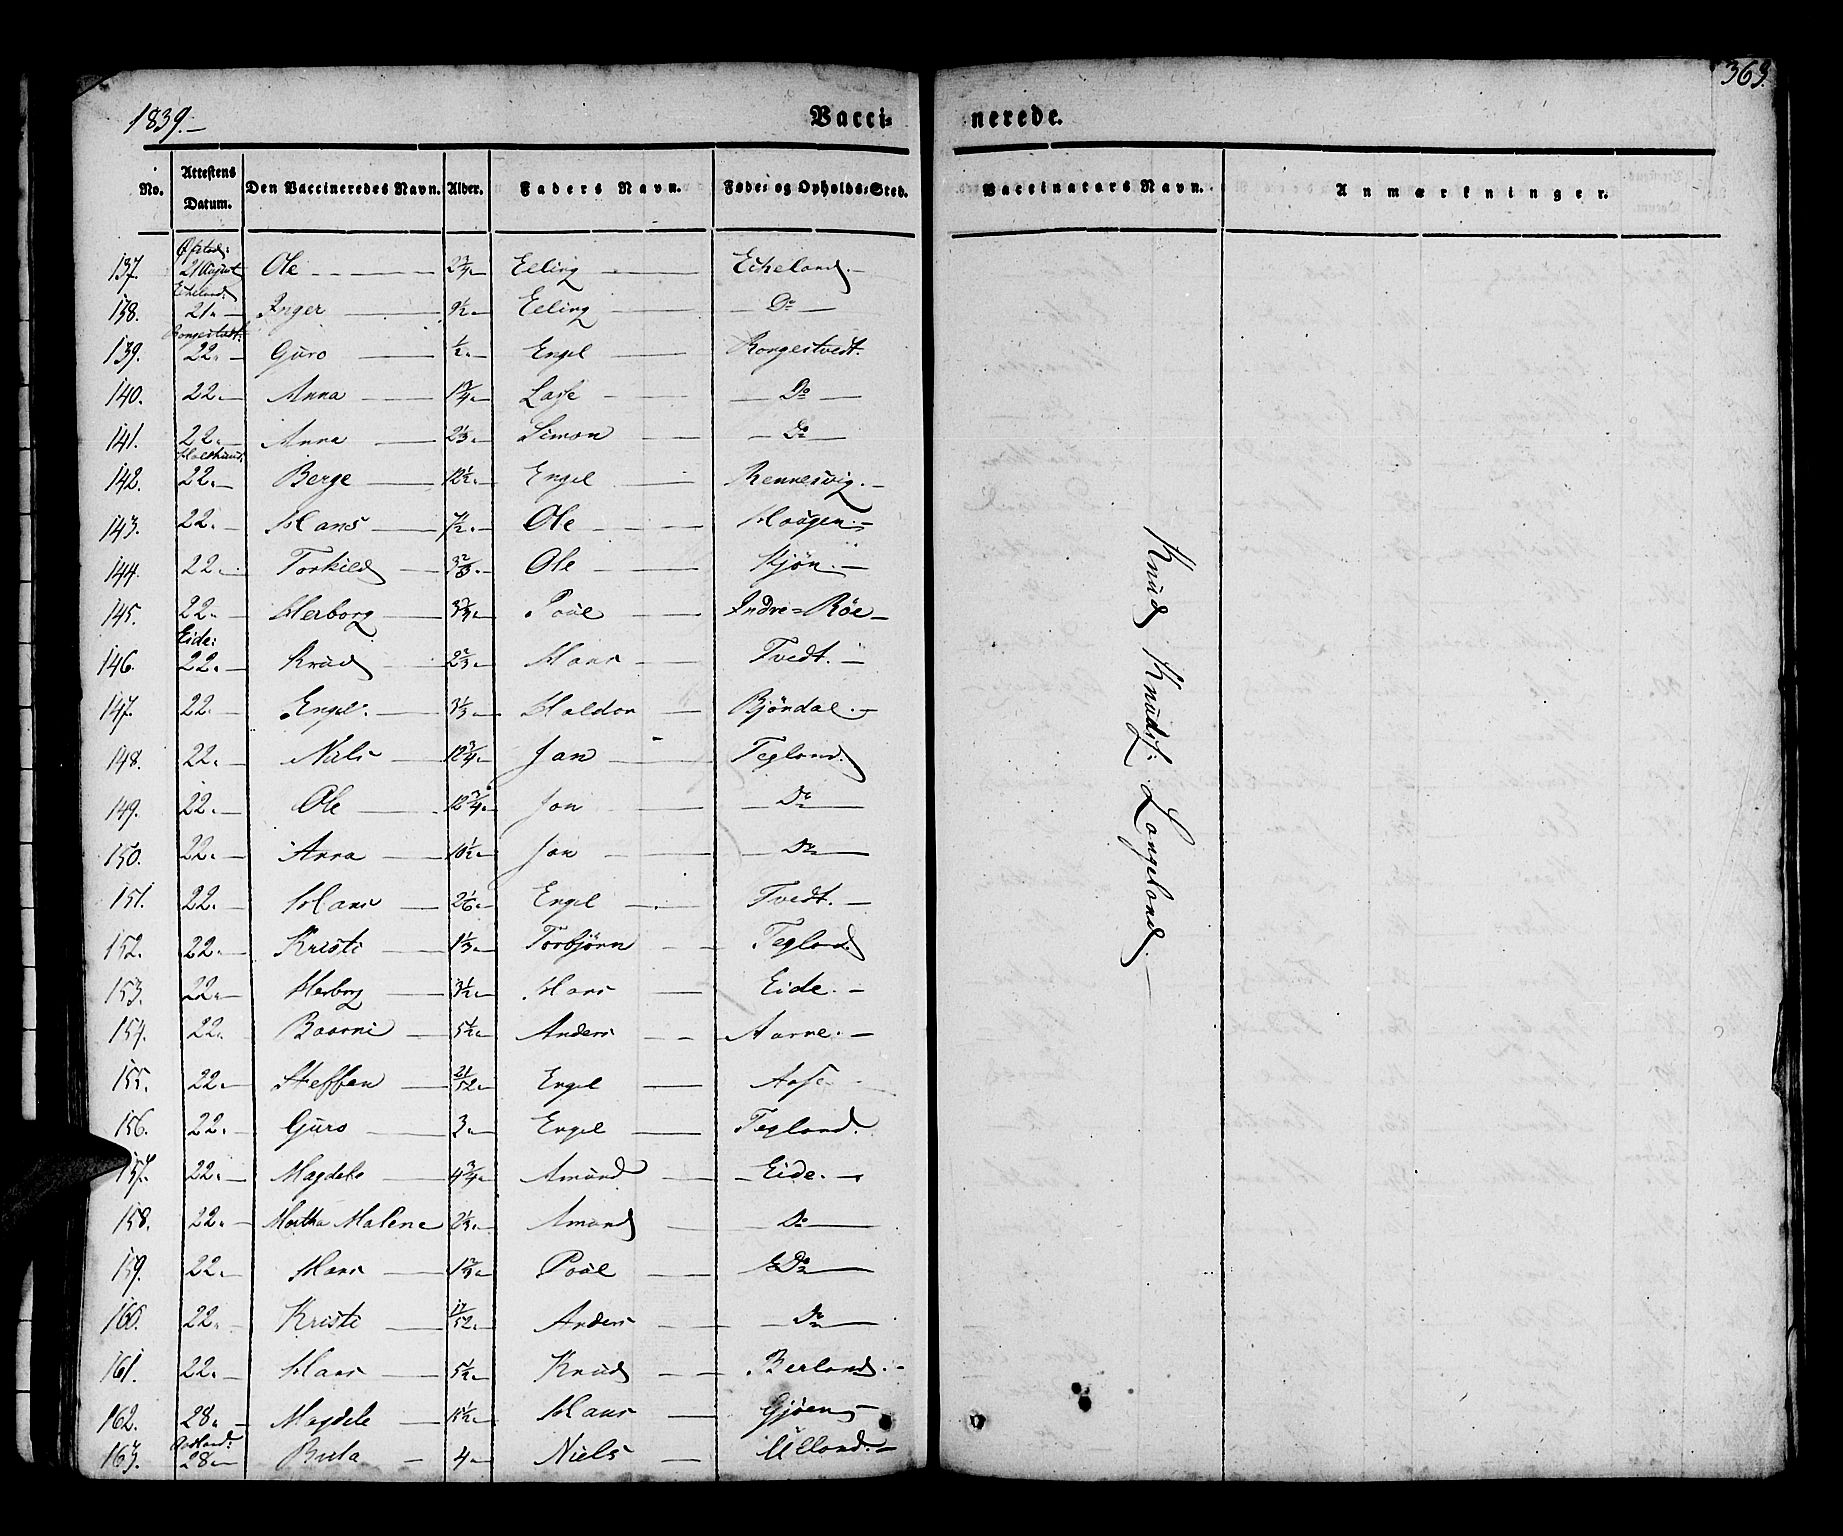 1839.
Vacci-nerede.
363.
No. Attestens Datum. Den Vaccineredes Navn. Alder. Faders Navn. Føde- og Opholds-Sted. Vaccinators Navn. Anmærkninger.
137. 21 August Ole 2¾ Elling Eikeland.
Eikeland
138. 21. Inger 9½ Elling Do
139. 22. Guro ½. Engel Borgestvedt.
140. 22. Anna 1¾ Lasse Do
141. 22. Anna 2⅓ Simon Do
142. 22. Berge 12½. Engel Rennesvig.
143. 22. Hans 7½. Ole Haagen.
144. 22. Torkild 3⅔. Ole Kjøn.
145. 22. Herborg 3⅔ Poul Indre-Röe
Eide:
146. 22. Knud 2⅔. Hans Tvedt.
147. 22. Engel. 3⅓ Haldor Bjöndal.
148. 22. Nils 12¾. Jon Tegland.
149. 22. Ole 12¾. Jon Do
150. 22. Anna 10½. Jon Do
151. 22. Hans 2⅙. Engel Tvedt.
152. 22. Kristi 1⅓. Torbjörn Tegland
153. 22. Herborg 3½. Hans Eide.
154. 22. Baarni 5½. Anders Aarne.
155. 22. Steffen 21/52. Engel Aase
156. 22. Guro 3. Engel Tegland.
157. 22. Magdele 4¾. Amund Eide.
158. 22. Martha Malene 2⅓. Amund Do
159. 22. Hans 1⅔. Poul Do
160. 22. Kristi 17/52. Anders Do
161. 22. Hans 5½. Knud Berland.
162. 28. Magdele 11½. Hans Gjöen
163. 28. Brita 4. Niels Ulland.
Knud Knuds: Langeland.